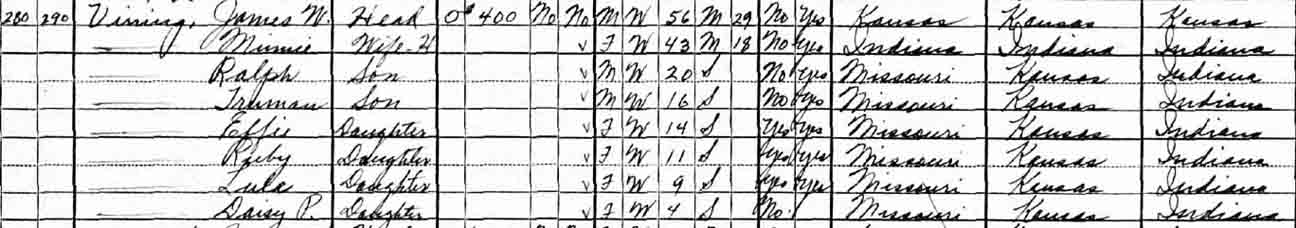 280 290 Vining, James W. Head O 400 No No M W 56 M 29 No Yes Kansas Kansas Kansas
Minnie Wife-H V F W 43 M 18 No Yes Indiana Indiana Indiana
Ralph Son V M W 20 S No Yes Missouri Kansas Indiana
Truman Son V M W 16 S No Yes Missouri Kansas Indiana
Effie Daughter V F W 14 S Yes Yes Missouri Kansas Indiana
Ruby Daughter V F W 11 S Yes Yes Missouri Kansas Indiana
Lula Daughter V F W 9 S Yes Yes Missouri Kansas Indiana
Daisy P. Daughter V F W 4 S No Missouri Kansas Indiana